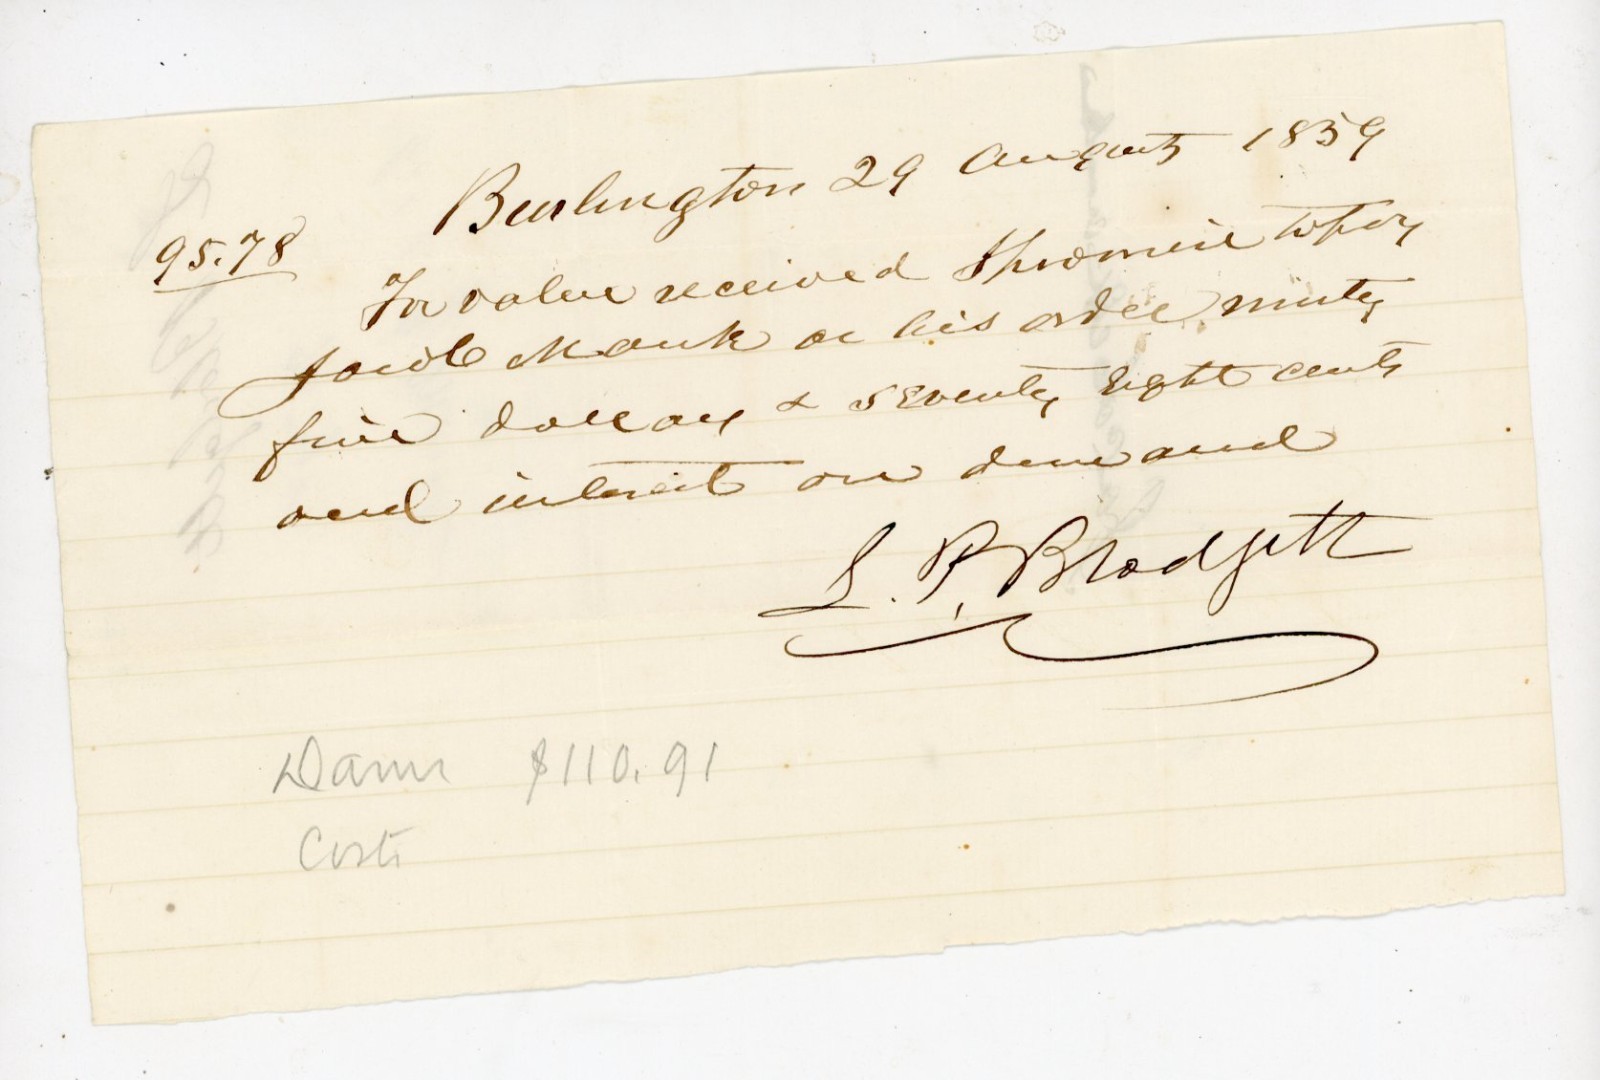 Burlington 29 August 1859
95.78
For value received I promise to pay
Jacob Mauk or his order ninty
five dollars & seventy eight cents
and interest on demand
L. P. Blodgett
Dam $110.91
Costs